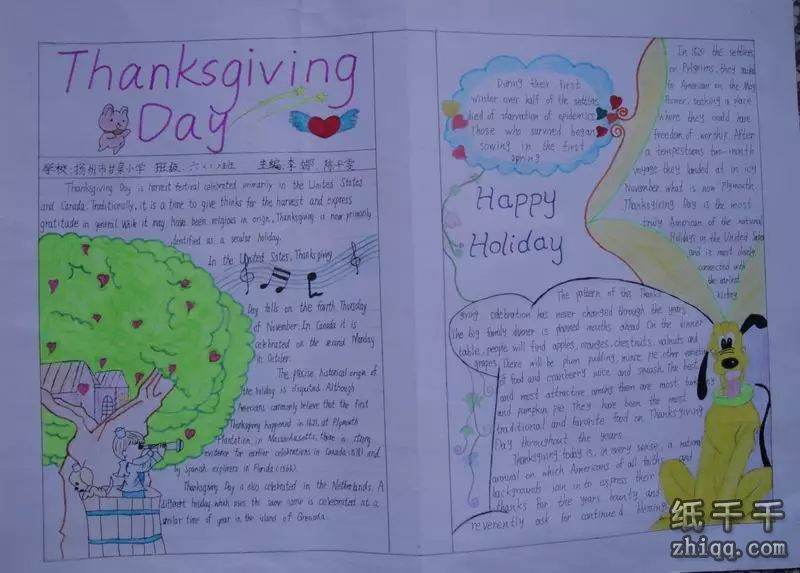 Thanksgiving
Day
学校:扬州市甘泉小学 班级:六(1)班 主编:李娜、陈平雯
Thanksgiving Day is harvest festival celebrated primarily in the United States
and Canada. Traditionally, it is a time to give thinks for the harvest and express
gratitude in general. While it may have been religious in origin, Thanksgiving is now primarily
identified as a secular holiday.
In the United States, Thanksgiving
Day falls on the fourth Thursday
of November. In Canada it is
celebrated on the second Monday
in October.
The precise historical origin of
the holiday is disputed. Although
Americans commonly believe that the first
Thanksgiving happened in 1621, at Plymouth
Plantation, in Massachusetts, there is strong
evidence for earlier celebrations in Canada (1578) and
by Spanish explorers in Florida (1565).
Thanksgiving Day is also celebrated in the Netherlands. A
different holiday which uses the same name is celebrated at a
similar time of year in the island of Grenada.
During their first
winter over half of the settlers
died of starvation of epidemics
Those who survived began
sowing in the first
spring
Happy
Holiday
In 1620 the settlers,
or Pilgrims, they sailed
to American on the May
flower, seeking a place
where they could have
freedom of worship. After
a tempestuous two-month
voyage they landed at in icy
November, what is now Plymouth.
Thanksgiving Day is the most
truly American of the national
Holidays in the United States
and is most closely
connected with
the earliest
history
The pattern of the Thanks
giving celebration has never changed through the years.
The big family dinner is planned months ahead. On the dinner
table, people will find apples, oranges, chestnuts, walnuts and
grapes. There will be plum pudding, mince pie, other varieties
of food and cranberry juice and squash. The best
and most attractive among them are roast turkey
and pumpkin pie. They have been the most
traditional and favorite food on Thanksgiving
Day throughout the years.
Thanksgiving today is, in every sense, a national
annual on which Americans of all faiths and
backgrounds join in to express their
thanks for the years bounty and
reverently ask for continued blessings
纸千千
zhiqq.com